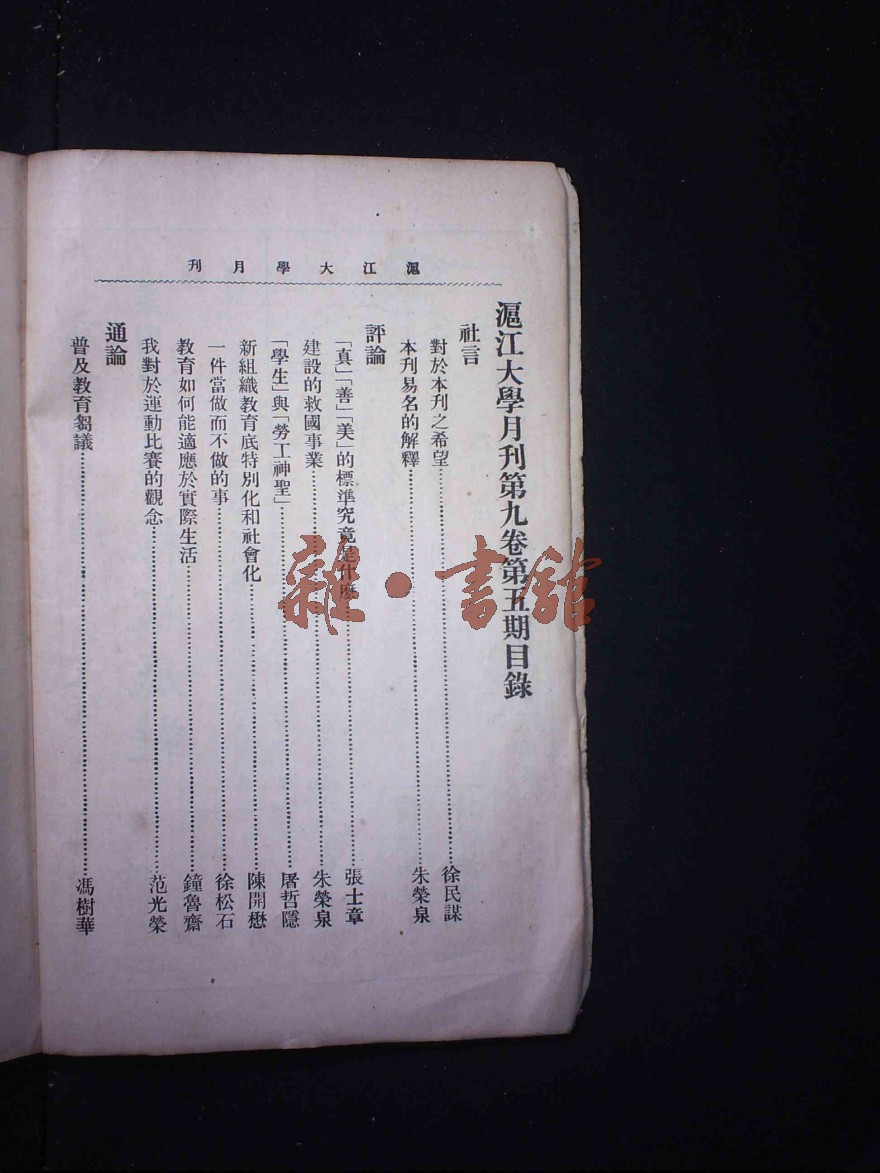 滬江大學月刊
滬江大學月刊第九卷第五期目錄
社言
對於本刊之希望……徐民謀
本刊易名的解釋……朱榮泉
評論
「真」「善」「美」的標準究竟是什麽……張士章
建設的救國事業……朱榮泉
「學生」與「勞工神聖」……屠哲隱
新組織教育底特別化和社會化……陳開懋
一件當做而不做的事……徐松石
教育如何能適應於實際生活……鐘魯齋
我對於運動比賽的觀念……范光榮
通論
普及教育芻議……馮樹華
雜·書館